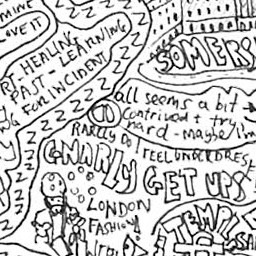 MINE
LOVE IT
HEALING
PAST - LEARNING
FOR INCIDENT
SOMERS
all seems a bit
Contrived + try
hard - maybe I'm
RARELY DO I FEEL UNDERDRESS
GNARLY GET UPS
LONDON
FASHION
TEMPLE